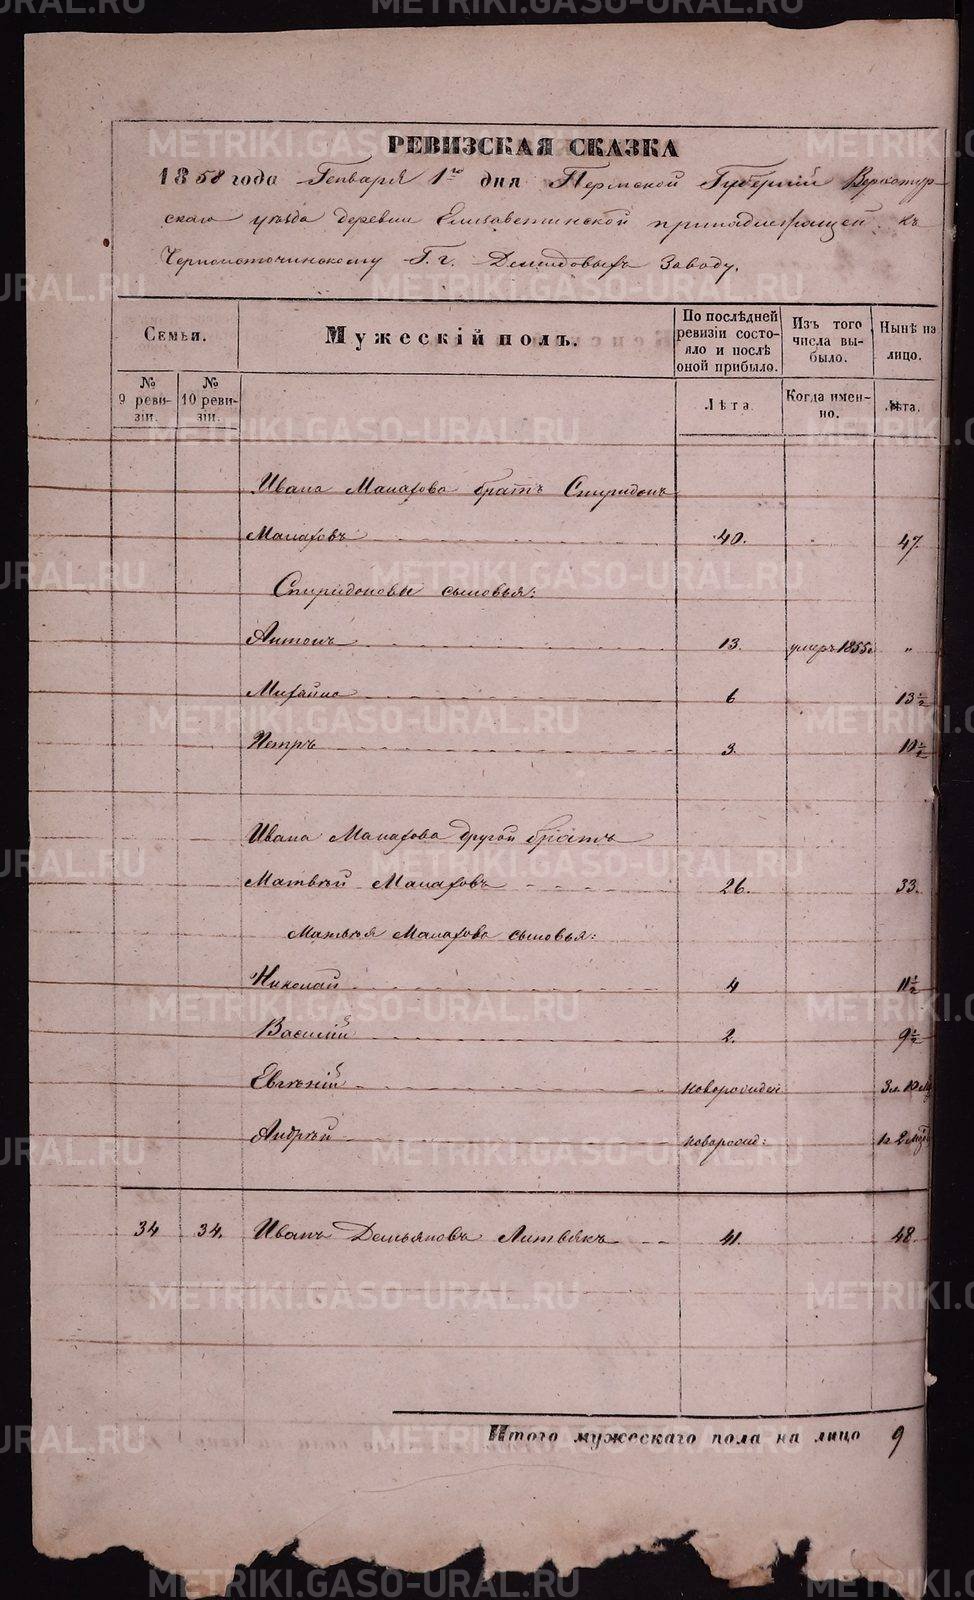 РЕВИЗСКАЯ СКАЗКА
1858 года Генваря 1го дня Пермской Губернии Верхотур-
скаго уѣзда деревни Елизаветинской принадлежащей къ
Черноисточинскому Г.г. Демидовыхъ Заводу.
Семьи.
Мужескій полъ.
По послѣдней ревизіи состо-яло и послѣ оной прибыло.
Изъ того числа вы-было.
Нынѣ на лицо.
№ 9 реви-зіи.
№ 10 реви-зіи.
Лѣта.
Когда имен-но.
Лѣта.
Ивана Малахова братъ Спиридонъ
Малаховъ 40. 47.
Спиридоновы сыновья:
Антонъ 13. умеръ 1855 „
Михайло 6 13½
Петръ 3. 10½
Ивана Малахова другой братъ
Матвѣй Малаховъ 26. 33.
Матвѣя Малахова сыновья:
Николай 4 11½
Василій 2. 9½
Евгеній новорожден 3 л. 10 м
Андрѣй новорожд: 1 г 2 мѣс
34 34. Иванъ Демьяновъ Литвякъ 41. 48.
Итого мужескаго пола на лицо 9
METRIKI.GASO-URAL.RU